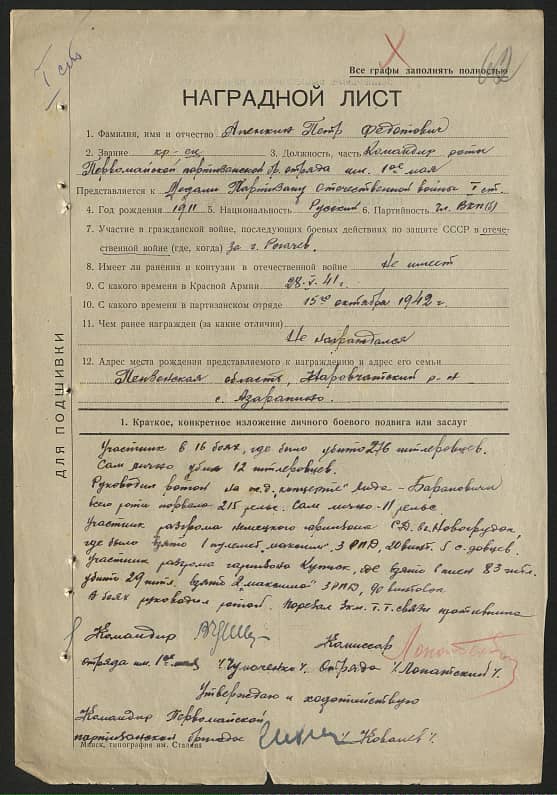 Все графы заполнять полностью
НАГРАДНОЙ ЛИСТ
1. Фамилия, имя и отчество Апенкин Петр Федотович
2. Звание кр-ец 3. Должность, часть Командир роты
Первомайской партизанской бр. отряда им. 1ое мая
Представляется к Медали Партизану Отечественной войны I ст.
4. Год рождения 1911 5. Национальность Русский 6. Партийность чл. ВКП(б)
7. Участие в гражданской войне, последующих боевых действиях по защите СССР в отече-
ственной войне (где, когда) за г. Рогачев.
8. Имеет ли ранения и контузии в отечественной войне Не имеет
9. С какого времени в Красной Армии 28.V.41г.
10. С какого времени в партизанском отряде 15го октября 1942г.
11. Чем ранее награжден (за какие отличия)
Не награждался
12. Адрес места рождения представляемого к награждению и адрес его семьи
Пензенская область, Наровчатский р-н
с. Азарапино.
ДЛЯ ПОДШИВКИ
1. Краткое, конкретное изложение личного боевого подвига или заслуг
Участник в 16 боях, где было убито 276 гитлеровцев.
Сам лично убил 12 гитлеровцев.
Руководил ротой на ж.д. „концерте" Лида - Барановичи
всего роты порвала 215 рельс. Сам лично - 11 рельс.
Участник разгрома немецкого гарнизона
где было взято 1 пулемет „максим", 3 РПД, 20 винт.
Участник разгрома гарнизона где взято 83 гитл.
убито 29 гитл. взято 2 „максима" 3 РПД, 90 винтовок.
В боях руководил ротой. Порвал 3км. Т.Т. связи противника
Командир Комиссар
отряда им. 1ое мая Отряда /Лопатский/
Утверждаю и ходатайствую
Командир Первомайской
партизанской бригады /Ковалев/
Минск, типография им. Сталина